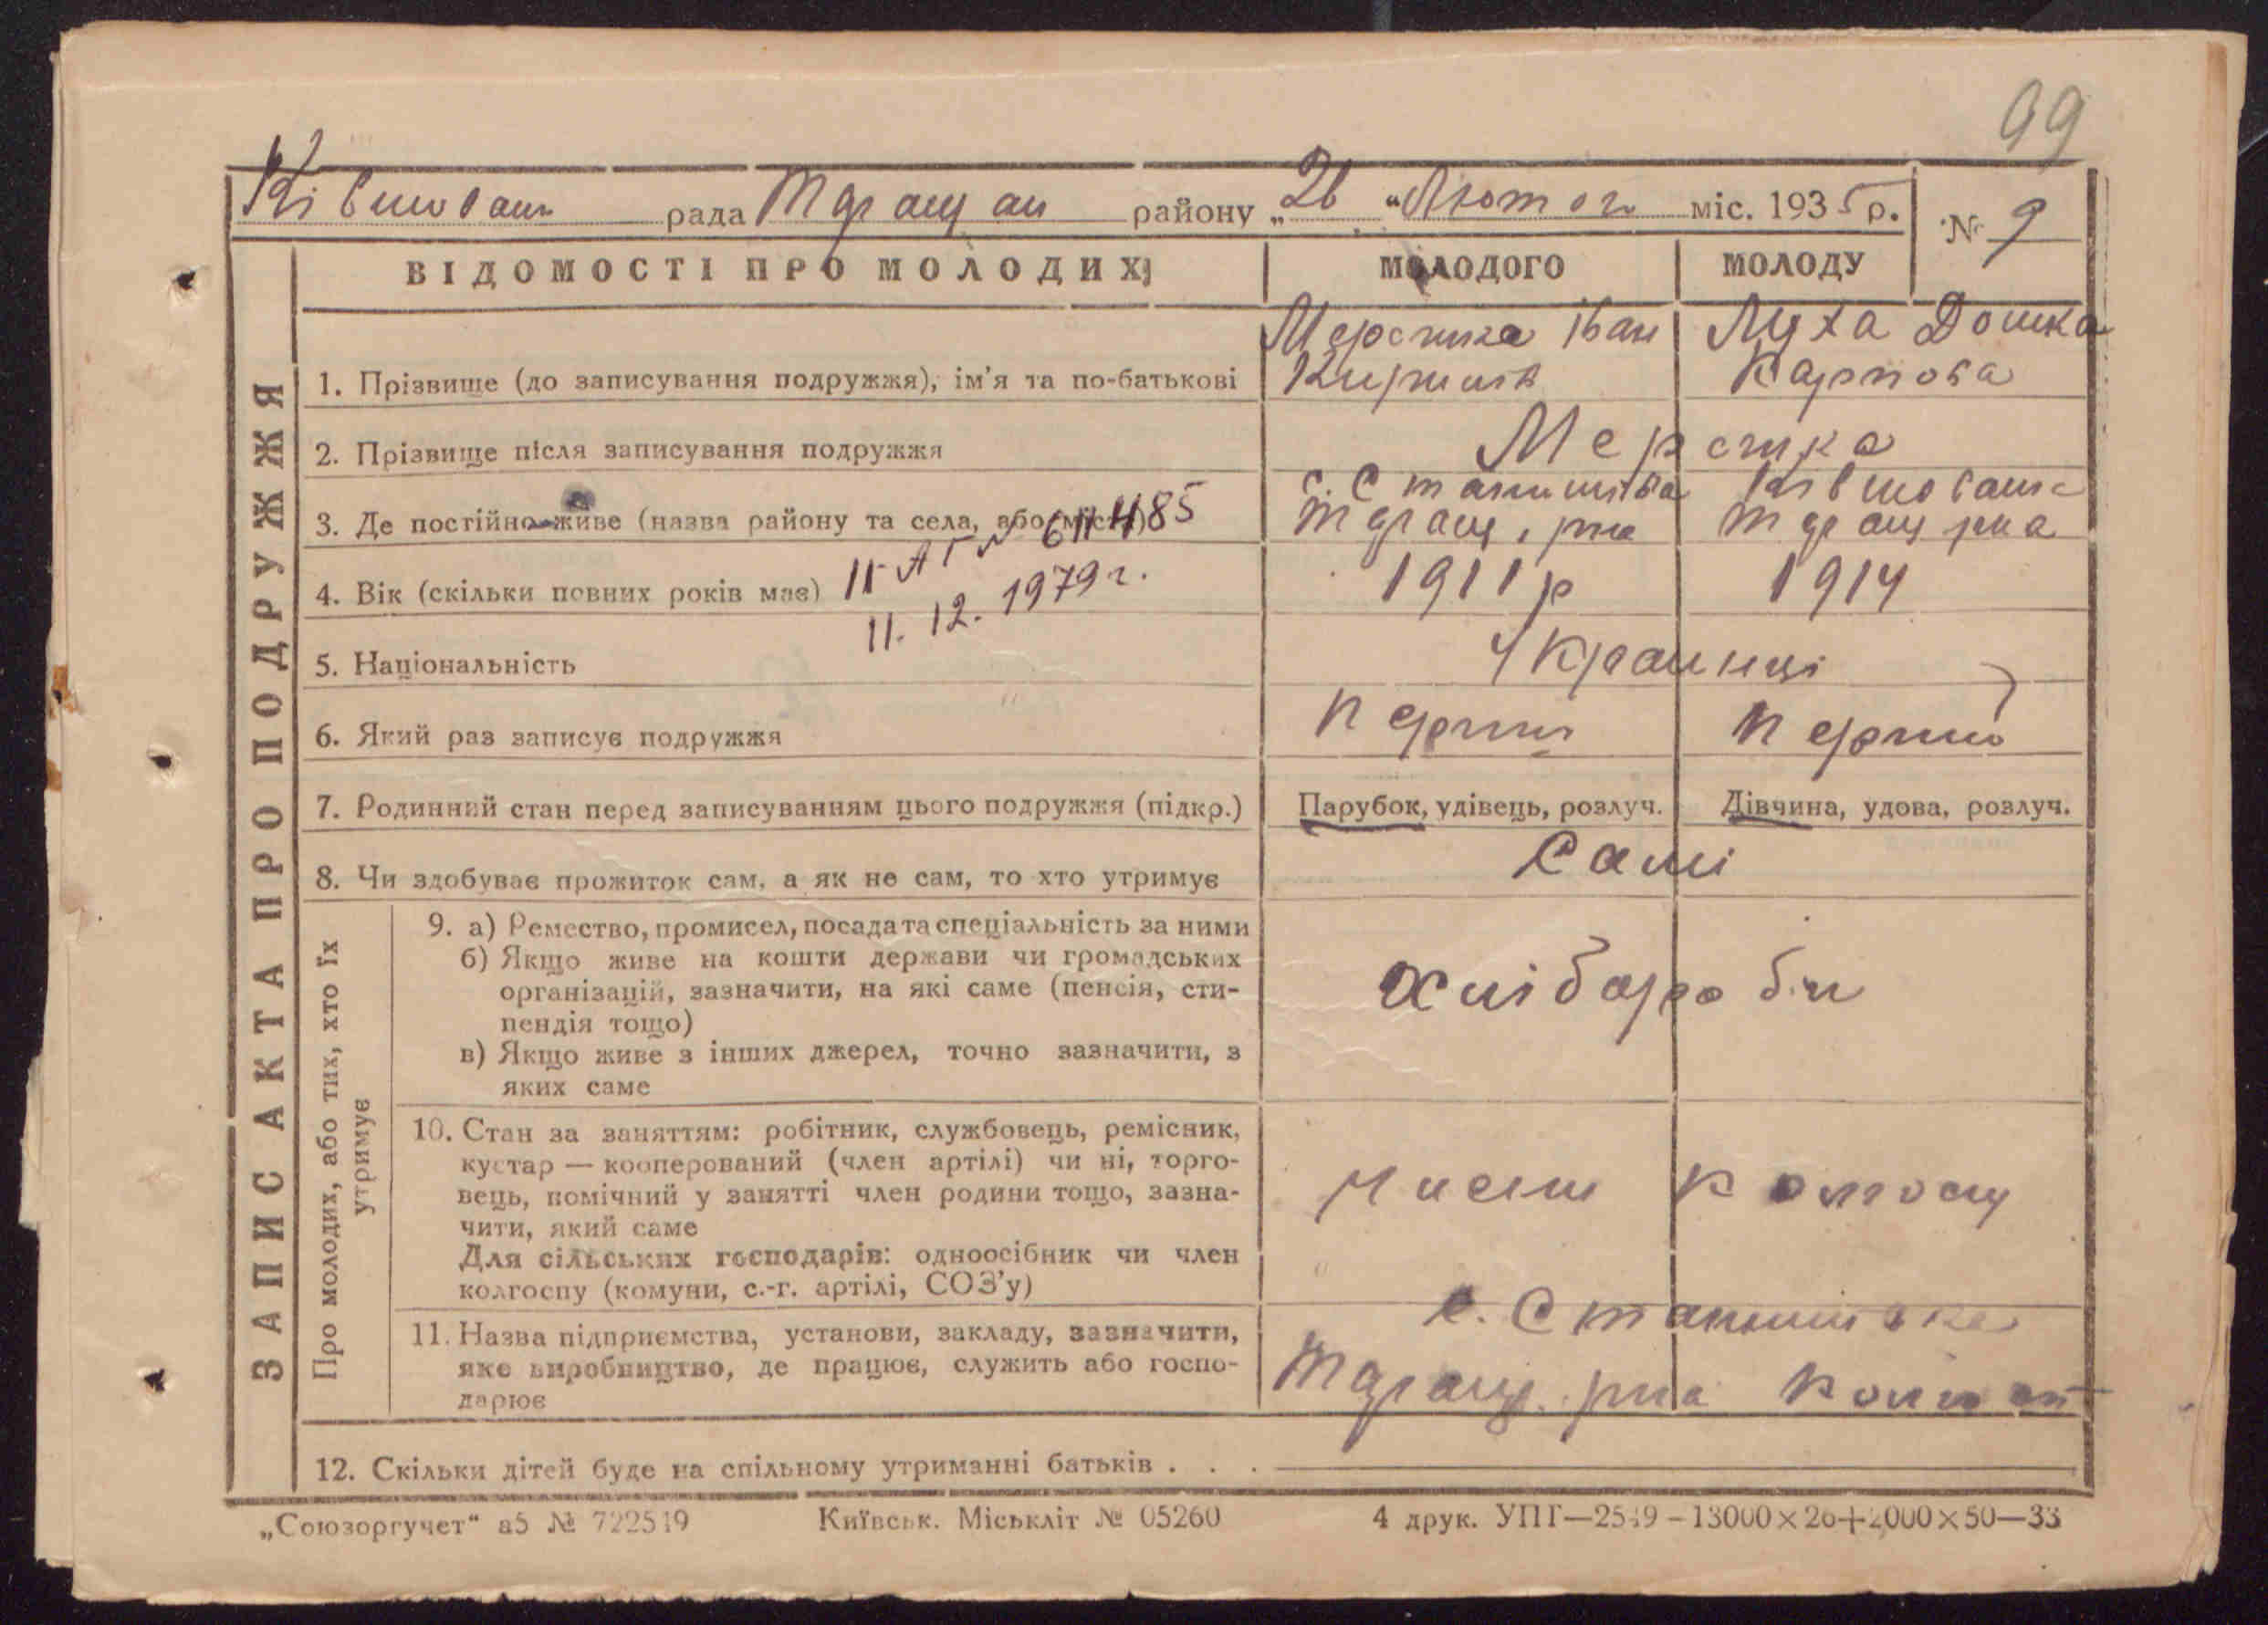 99
Ківшовам рада Таращан району „26“ Лютого міс. 1935 р. № 9
ВІДОМОСТІ ПРО МОЛОДИХ МОЛОДОГО МОЛОДУ
ЗАПИС АКТА ПРО ПОДРУЖЖЯ
Іван Луха Дошка
1. Прізвище (до записування подружжя), ім’я та по-батькові Карпова
2. Прізвище після записування подружжя
3. Де постійно живе (назва району та села, або міста)
Таращ. рна Таращ рна
611485
4. Вік (скільки повних років має) 1911 р 1914
11. 12. 1979 г.
5. Національність Українці
6. Який раз записує подружжя Перший Перший
7. Родинний стан перед записуванням цього подружжя (підкр.) Парубок, удівець, розлуч. Дівчина, удова, розлуч.
8. Чи здобуває прожиток сам, а як не сам, то хто утримує Самі
Про молодих, або тих, хто їх
утримує
9. а) Ремество, промисел, посада та спеціальність за ними
б) Якщо живе на кошти держави чи громадських
організацій, зазначити, на які саме (пенсія, сти-
пендія тощо)
в) Якщо живе з інших джерел, точно зазначити, з
яких саме
Хлібороби
10. Стан за заняттям: робітник, службовець, ремісник,
кустар — кооперований (член артілі) чи ні, торго-
вець, помічний у занятті член родини тощо, зазна-
чити, який саме
Для сільських господарів: одноосібник чи член
колгоспу (комуни, с.-г. артілі, СОЗ’у)
11. Назва підприємства, установи, закладу, зазначити,
яке виробництво, де працює, служить або госпо-
дарює
с. Станишівка
Таращ. рна
12. Скільки дітей буде на спільному утриманні батьків . . .
„Союзоргучет“ а5 № 722519 Київськ. Міськліт № 05260 4 друк. УПГ—2549 – 13000×26+2000×50—33